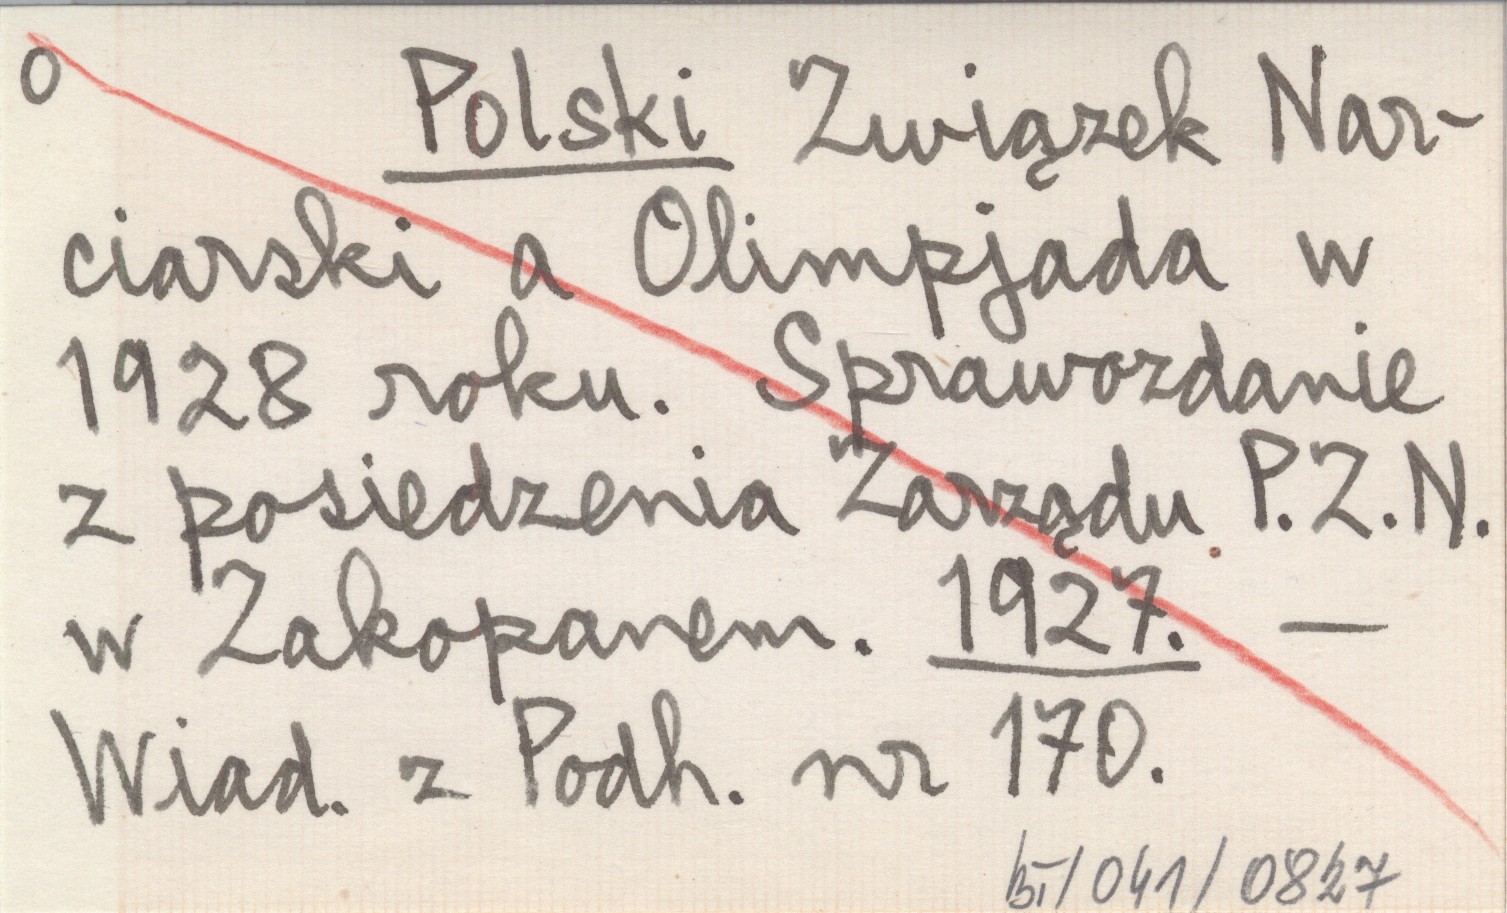 o Polski Związek Nar-
ciarski a Olimpjada w
1928 roku. Sprawozdanie
z posiedzenia Zarządu P.Z.N.
w Zakopanem. 1927. —
Wiad. z Podh. nr 170.
bī/041/0827